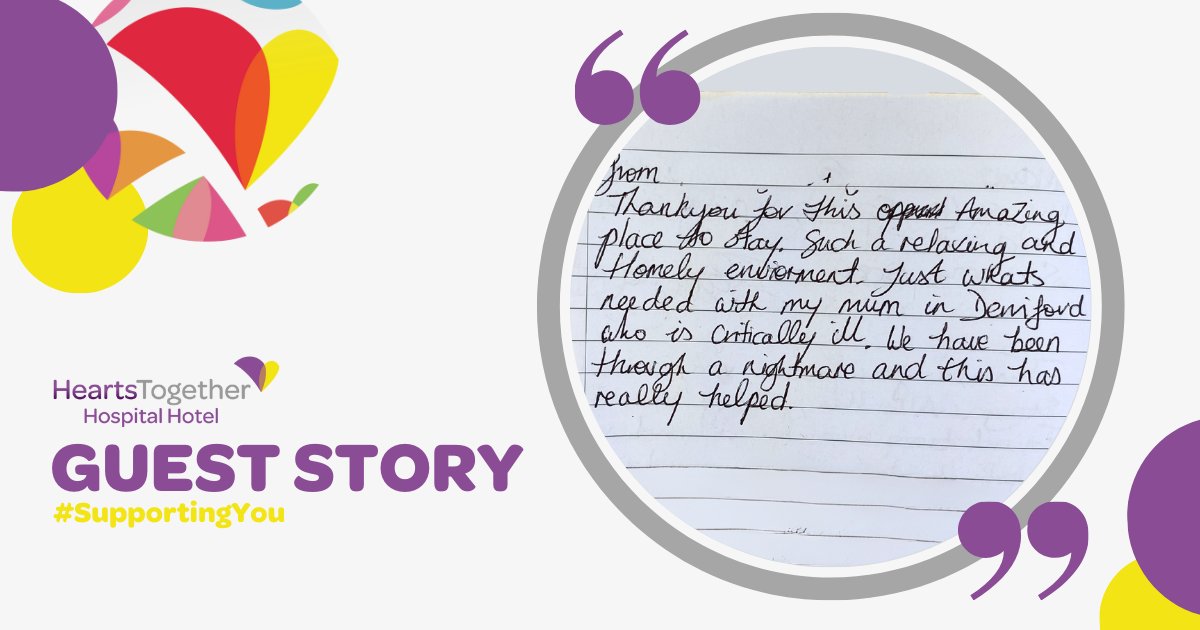 HeartsTogether
Hospital Hotel
GUEST STORY
#SupportingYou
from
Thankyou for this Amazing
place to stay. Such a relaxing and
Homely enviorment. Just whats
needed with my mum in Derriford
who is critically ill. We have been
through a nightmare and this has
really helped.